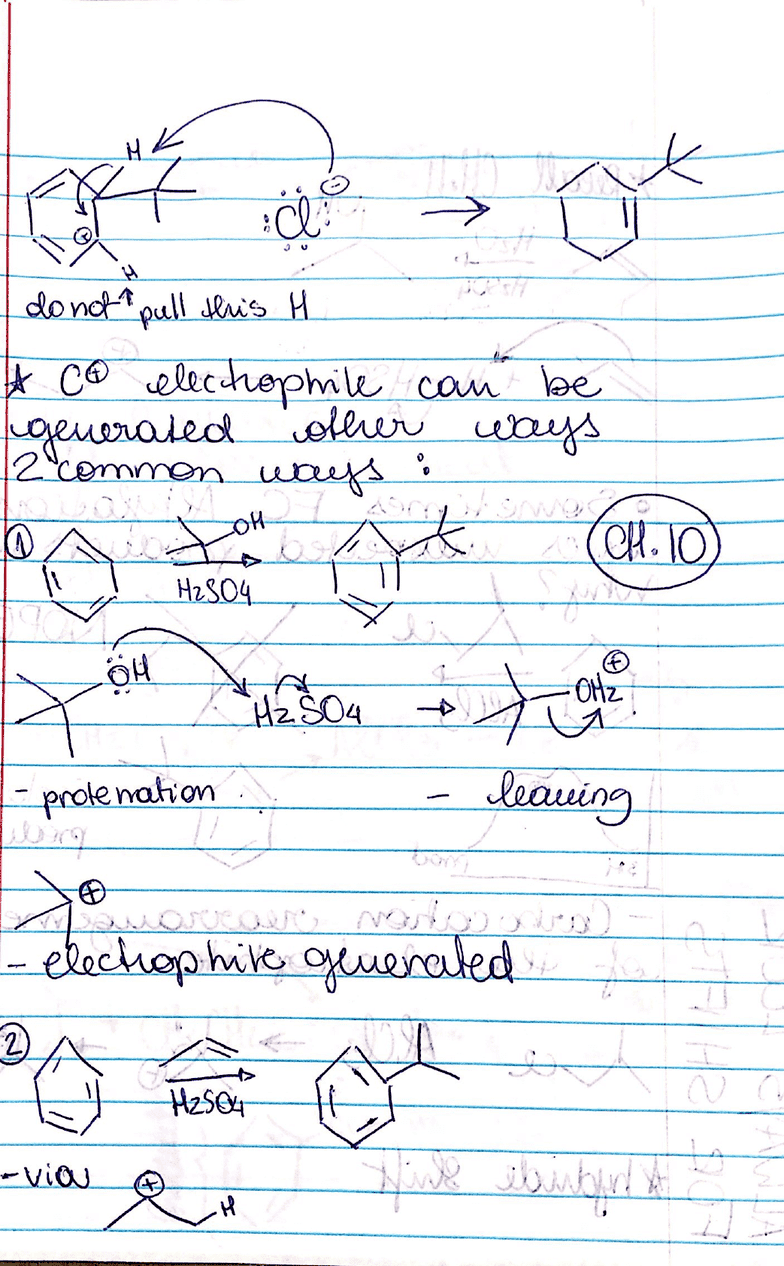 H
:Cl: ⊖
⊕
H
do not ↑ pull this H
★ C⊕ electrophile can be
generated other ways
2 common ways :
① OH
H2SO4
CH. 10
ÖH H2SO4 → OH2 ⊕
- protonation - leaving
⊕
- electrophile generated
②
H2SO4
- via ⊕ H